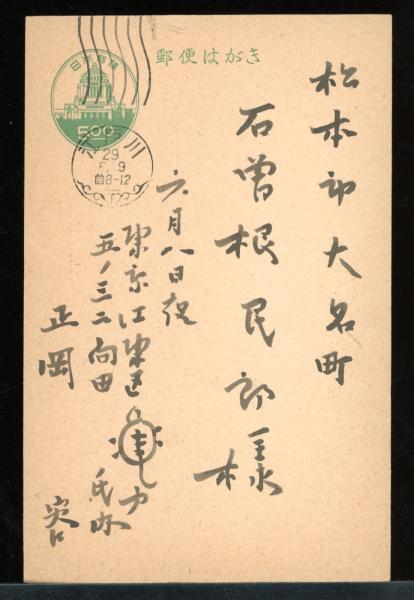 郵便はがき
日本郵便
500
江戸川
29
6.9
前8-12
松本市大名町
石曽根民郎様
六月八日夜
東京江東区
五ノ三二 向田氏内
正岡 容